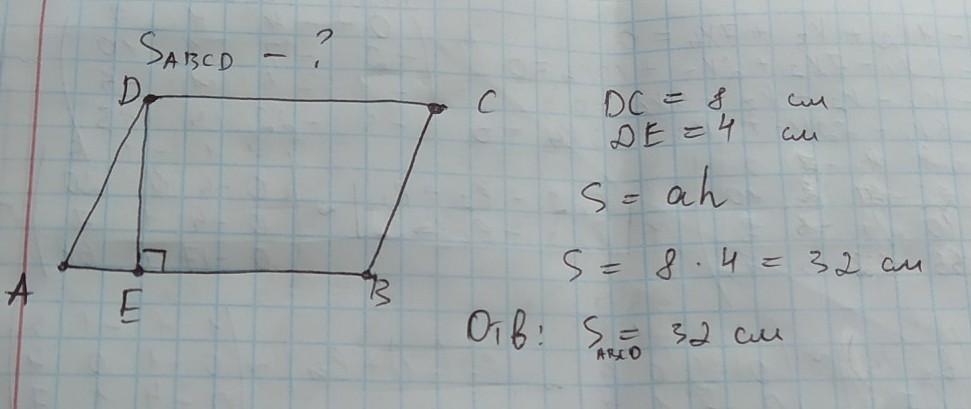 S_ABCD - ?
D
C
A
E
B
DC = 8 см
DE = 4 см
S = ah
S = 8 · 4 = 32 см
Отв: S_ABCD = 32 см